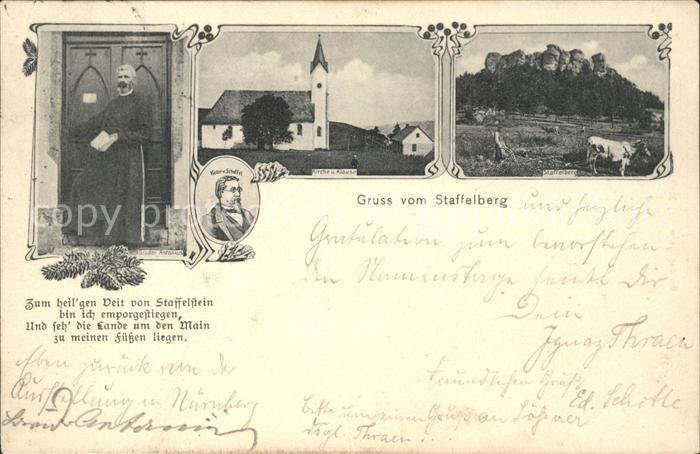 Bruder Antonius
Kirche u. Klause
Staffelberg
Gruss vom Staffelberg
Zum heil'gen Veit von Staffelstein
bin ich emporgestiegen,
Und seh' die Lande um den Main
zu meinen Füßen liegen.
und herzliche
Gratulation zum bevorstehen-
den Namenstage sendet dir
Dein
Ignaz Thraen
Freundlichen Gruß
Ed. Schotte
Bitte um einen Gruß an
Thraen
Eben zurück von der
Ausstellung in Nürnberg
Antonius
copy protected